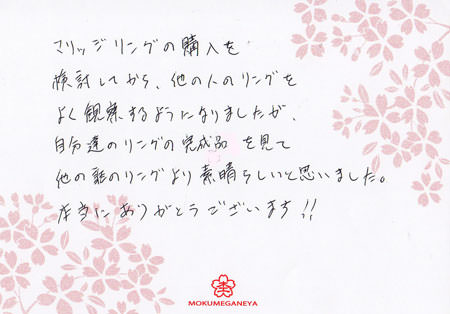 マリッジリングの購入を
検討してから、他の人のリングを
よく観察するようになりましたが、
自分達のリングの完成品を見て
他の誰のリングより素晴らしいと思いました。
本当にありがとうございます!!
MOKUMEGANEYA